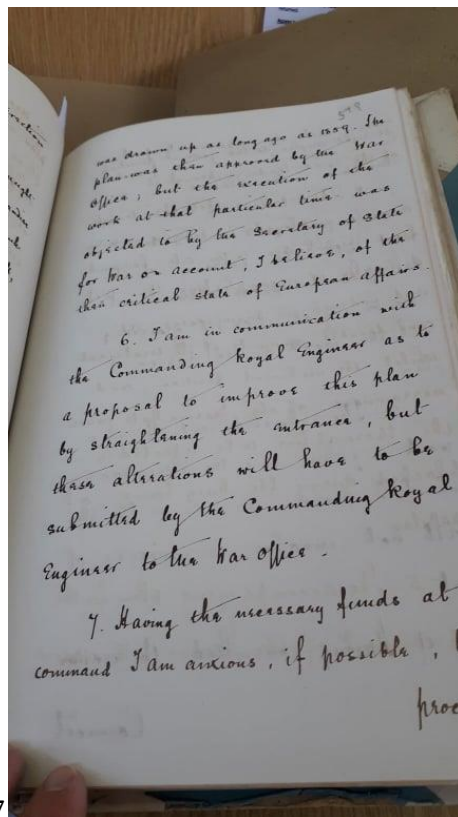 598
was drawn up as long ago as 1859. The
plan was then approved by the War
Office, but the execution of the
work at that particular time was
objected to by the Secretary of State
for War on account, I believe, of the
then critical state of European affairs.
6. I am in communication with
the Commanding Royal Engineer as to
a proposal to improve this plan
by straightening the entrance, but
these alterations will have to be
submitted by the Commanding Royal
Engineer to the War Office.
7. Having the necessary funds at
command I am anxious, if possible,
proc
7